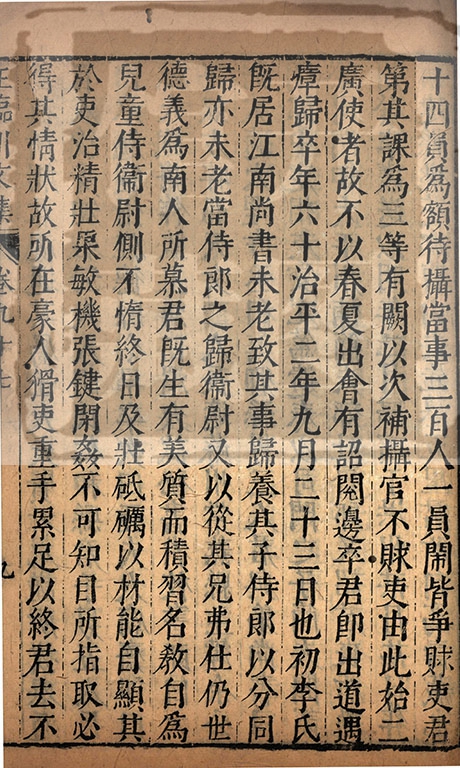 十四員為額待攝當事三百人一員闕皆爭賕吏君
第其課為三等有闕以次補攝官不賕吏由此始二
廣使者故不以春夏出會有詔閱邊卒君即出道遇
瘴歸卒年六十治平二年九月二十三日也初李氏
旣居江南尚書未老致其事歸養其子侍郎以分司
歸亦未老當侍郎之歸衞尉又以從其兄弗仕仍世
德義為南人所慕君旣生有美質而積習名敎自為
兒童侍衞尉側不惰終日及壯砥礪以材能自顯其
於吏治精壯果敏機張鍵閉姦不可知目所指取必
得其情狀故所在豪人猾吏重手累足以終君去不
王臨川文集 卷九十七 九